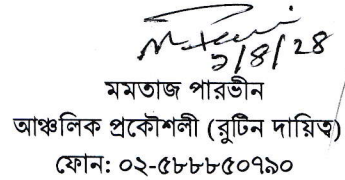 ১/৪/২৪
মমতাজ পারভীন
আঞ্চলিক প্রকৌশলী (রুটিন দায়িত্ব)
ফোন: ০২-৫৮৮৮৫০৭৯০